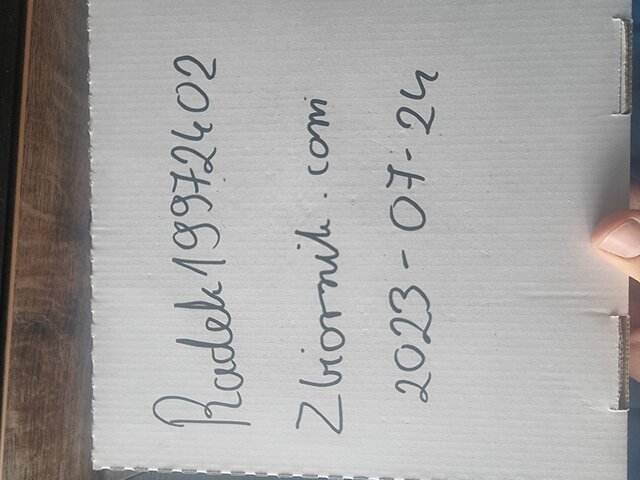 Radek19972402
Zbiornik.com
2023-07-24